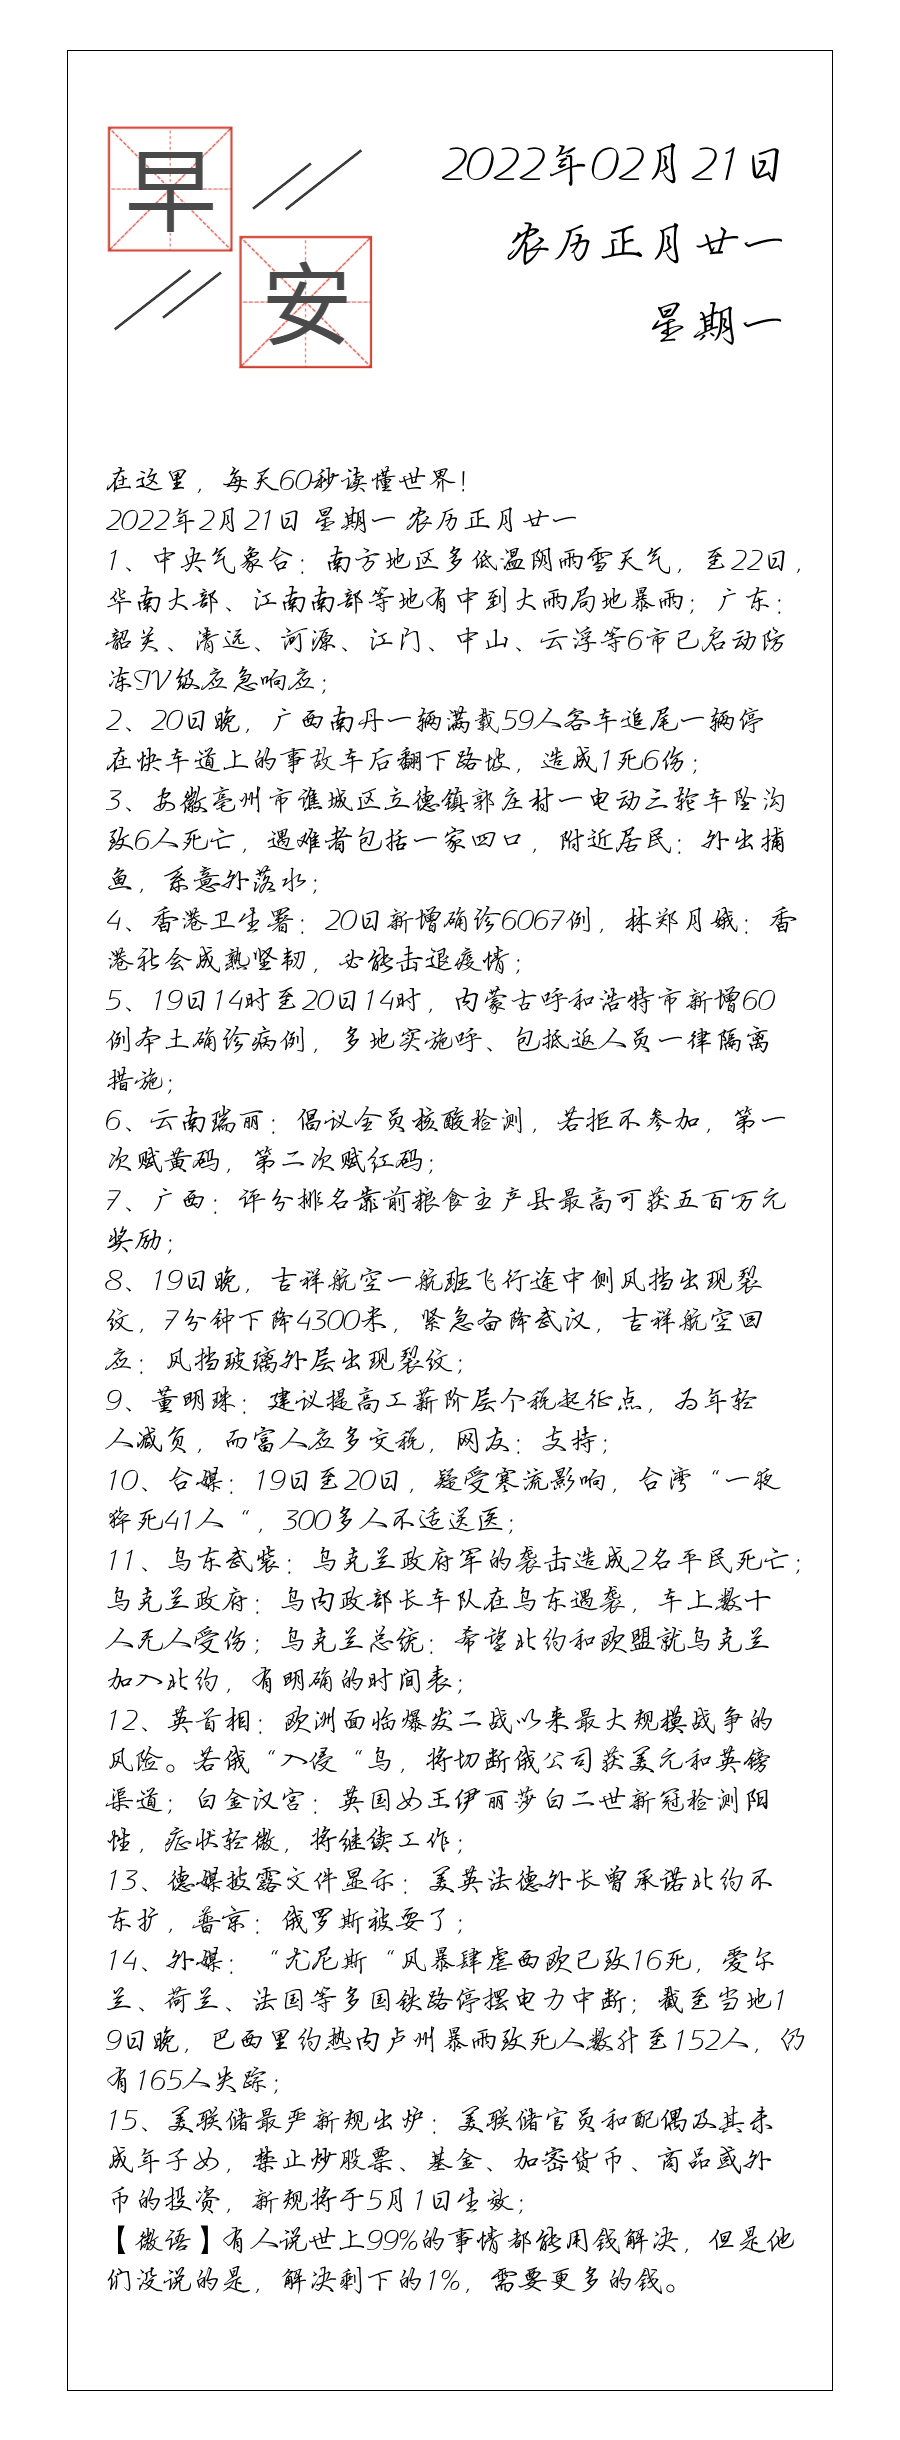 早安
2022年02月21日
农历正月廿一
星期一
在这里，每天60秒读懂世界！
2022年2月21日 星期一 农历正月廿一
1、中央气象台：南方地区多低温阴雨雪天气，至22日，
华南大部、江南南部等地有中到大雨局地暴雨；广东：
韶关、清远、河源、江门、中山、云浮等6市已启动防
冻IV级应急响应；
2、20日晚，广西南丹一辆满载59人客车追尾一辆停
在快车道上的事故车后翻下路坡，造成1死6伤；
3、安徽亳州市谯城区立德镇郭庄村一电动三轮车坠沟
致6人死亡，遇难者包括一家四口，附近居民：外出捕
鱼，系意外落水；
4、香港卫生署：20日新增确诊6067例，林郑月娥：香
港社会成熟坚韧，必能击退疫情；
5、19日14时至20日14时，内蒙古呼和浩特市新增60
例本土确诊病例，多地实施呼、包抵返人员一律隔离
措施；
6、云南瑞丽：倡议全员核酸检测，若拒不参加，第一
次赋黄码，第二次赋红码；
7、广西：评分排名靠前粮食主产县最高可获五百万元
奖励；
8、19日晚，吉祥航空一航班飞行途中侧风挡出现裂
纹，7分钟下降4300米，紧急备降武汉，吉祥航空回
应：风挡玻璃外层出现裂纹；
9、董明珠：建议提高工薪阶层个税起征点，为年轻
人减负，而富人应多交税，网友：支持；
10、台媒：19日至20日，疑受寒流影响，台湾“一夜
猝死41人“，300多人不适送医；
11、乌东武装：乌克兰政府军的袭击造成2名平民死亡；
乌克兰政府：乌内政部长车队在乌东遇袭，车上数十
人无人受伤；乌克兰总统：希望北约和欧盟就乌克兰
加入北约，有明确的时间表；
12、英首相：欧洲面临爆发二战以来最大规模战争的
风险。若俄“入侵“乌，将切断俄公司获美元和英镑
渠道；白金汉宫：英国女王伊丽莎白二世新冠检测阳
性，症状轻微，将继续工作；
13、德媒披露文件显示：美英法德外长曾承诺北约不
东扩，普京：俄罗斯被耍了；
14、外媒：“尤尼斯“风暴肆虐西欧已致16死，爱尔
兰、荷兰、法国等多国铁路停摆电力中断；截至当地1
9日晚，巴西里约热内卢州暴雨致死人数升至152人，仍
有165人失踪；
15、美联储最严新规出炉：美联储官员和配偶及其未
成年子女，禁止炒股票、基金、加密货币、商品或外
币的投资，新规将于5月1日生效；
【微语】有人说世上99%的事情都能用钱解决，但是他
们没说的是，解决剩下的1%，需要更多的钱。